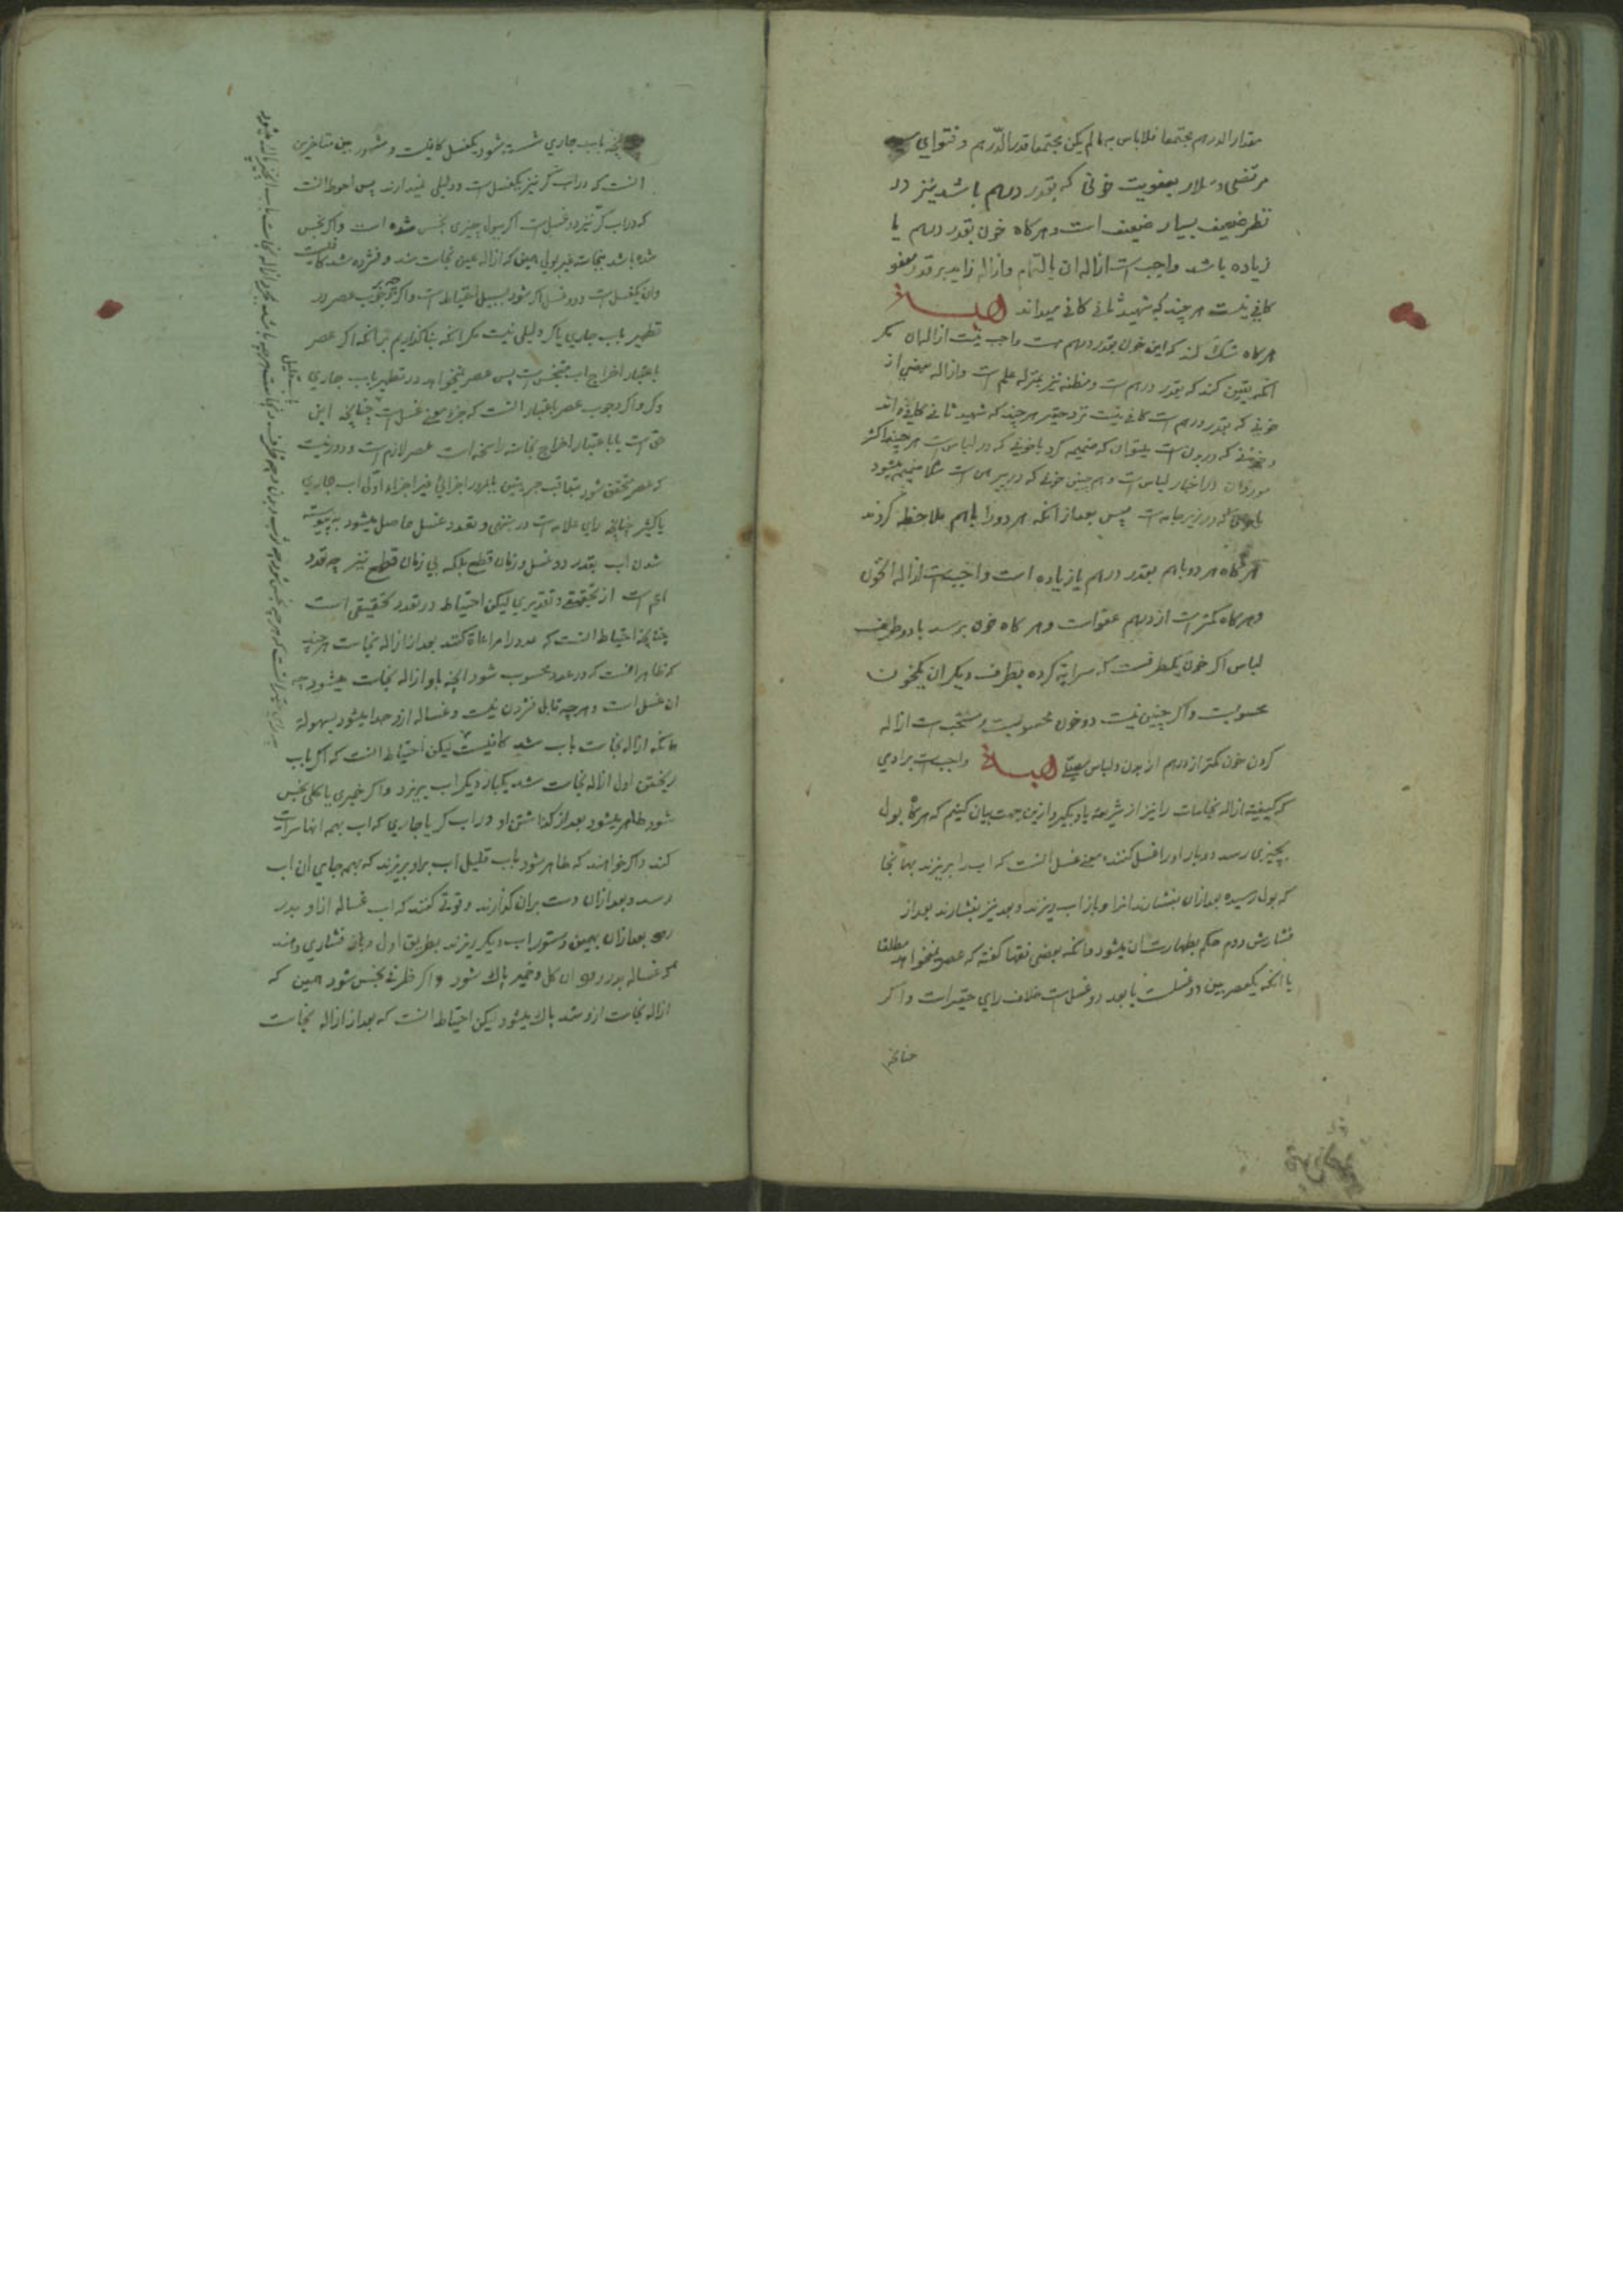 مقدار الدرهم مجتمعا فلا باس به ما لم یکن مجتمعا قدر الدّرهم و فتوای سید
مرتضی و سلار بعفویت خونی که بقدر درهم باشد نیز در
نظر ضعیف بسیار ضعیف است و هرکاه خون بقدر درهم یا
زیاده باشد واجبست ازاله ان بالتمام و ازاله زاید بر قدر معفو
کافی نیست هر چند که شهید ثانی کافی میداند
هرکاه شک کند که این خون بقدر درهم هست واجب نیست ازاله ان مکر
انکه یقین کند که بقدر درهم است و مظنه نیز بمنزله علم است و ازاله بعضی از
خونی که بقدر درهم است کافی نیست نزد حقیر هر چند که شهید ثانی کافی داند
و خونی که در بدن است میتوان که ضمیمه کرد با خونی که در لباس است هر چند اکثر
مورد ان در اخبار لباس است و هم چنین خونی که در پیرهن است ضمیمه میشود
که در زیر جامه است پس بعد از انکه هر دو را باهم ملاحظه کردند
هرکاه هر دو باهم بقدر درهم یا زیاده است واجبست ازاله ان خون
و هرکاه کمتر است از درهم عفو است و هرکاه خون برسد با دو طرف
لباس اکر خون یکطرفست که سرایه کرده بطرف دیکر ان یکخون
محسوبست و اکر چنین نیست دو خون محسوبست و مستحبست ازاله
کردن خون کمتر از درهم از بدن و لباس واجبست بر ادمی
که کیفیة ازاله نجاسات را نیز از شریعة یاد بکیرد ازین جهت بیان کنیم که هرکاه بول
بچیزی رسد دو بار او را غسل کنند معنی غسل انست که اب را بریزند بهر انجا
که بول رسیده بعد از ان بفشارند انرا و باز اب ریزند و بعد نیز بفشارند بعد از
فشارش دوم حکم بطهارت ان میشود و انکه بعضی فقها کفته که عصر نمیخواهد مطلقا
یا انکه یکعصر بین دو غسلست یا بعد دو غسلست خلاف رای حقیر است و اکر
چنانچه
باب جاری شسته شود یکغسل کافیست و مشهور بین متاخرین
انست که در اب کر نیز یکغسل است و دلیلی ندارند پس احوط انست
که در اب کرّ نیز دو غسل است اکر ببول چیزی نجس شده است و اکر نجس
شده باشد بنجاست غیر بولی همین که ازاله عین نجاست شد و فشرده شد کافیست
و ان یکغسل است و دو غسل اکر شود بسبیل احتیاط است و اکر چه وجوب عصر در
تطهیر باب جاری یا کر دلیلی نیست مکر انکه بنا کذاریم بر انکه اکر عصر
باعتبار اخراج اب متنجس است پس عصر نمیخواهد در تطهیر باب جاری
و کر و اکر وجوب عصر باعتبار انست که جزء معنی غسل است چنانچه این
حق است یا باعتبار اخراج نجاسة راسخه است عصر لازم است و دور نیست
که عصر متحقق شود بتعاقب جریتین یا بمرور اجزائی غیر اجزاء اولی اب جاری
یا کثیر چنانچه رای علامه است در منتهی و تعدد غسل حاصل میشود به پیوسته
شدن اب بقدر دو غسل و زمان قطع بلکه بی زمان قطع نیز چه تعدد
اعم است از تحقیقی و تقدیری لیکن احتیاط در تعدد تحقیقی است
چنانچه احتیاط انست که عدد را مراعاة کنند بعد از ازاله نجاست هر چند
که ظاهر انست که در عدد محسوب شود انچه باو ازاله نجاست میشود چه
ان غسل است و هر چه قابل فشردن نیست و غساله ازو جدا میشود بسهولة
همانکه ازاله نجاست باب شد کافیست لیکن احتیاط انست که اکر باب
ریختن اول ازاله نجاست شد یکبار دیکر اب بریزد و اکر خمیری یا کلی نجس
شود طاهر میشود بعد از کذاشتن او در اب کر یا جاری که اب بهمه انها سرایت
کند و اکر خواهند که طاهر شود باب قلیل اب برو بریزند که بهمه جای ان اب
رسد و بعد از ان دست بران کذارند و قوتی کنند که اب غساله از او بدر
رود بعد از ان بهمین دستور اب دیکر ریزند بطریق اول و باز فشاری دهند
که غساله بدر رود ان کل و خمیر پاک شود و اکر ظرفی نجس شود همین که
ازاله نجاست ازو شد پاک میشود لیکن احتیاط انست که بعد از ازاله نجاست